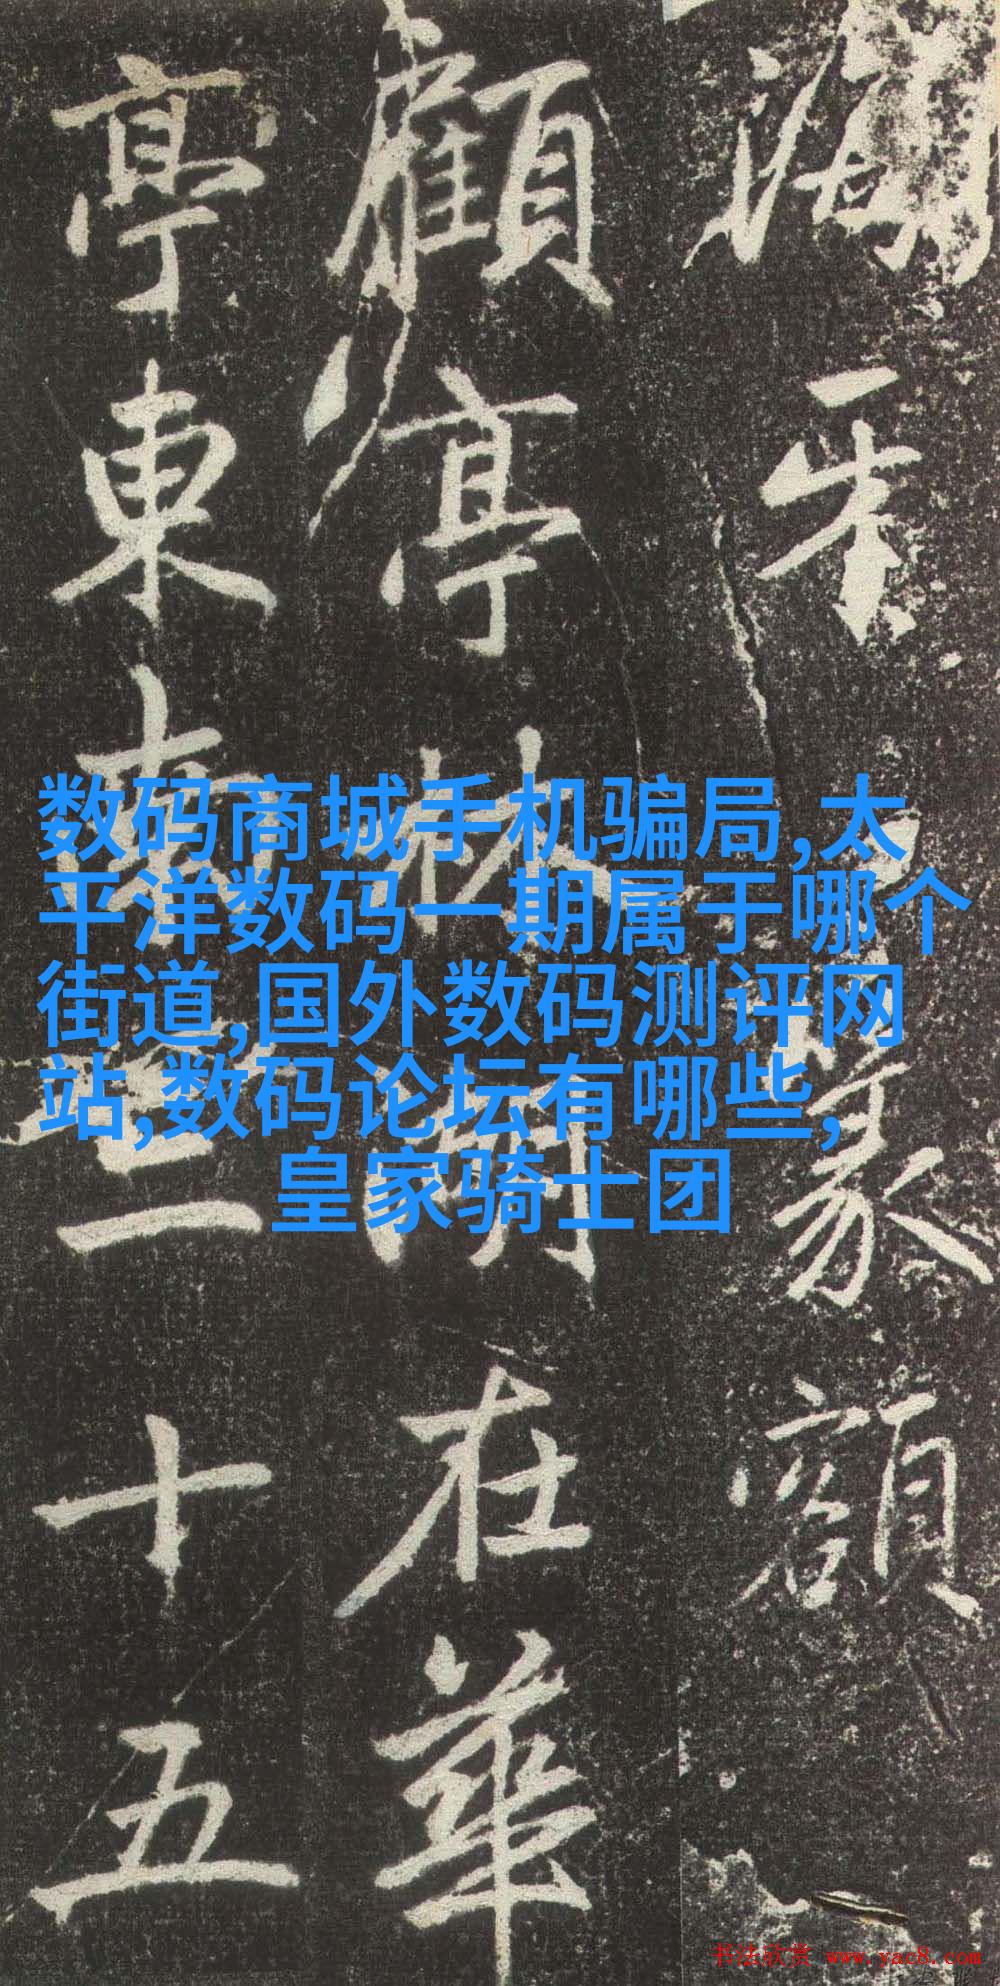 篆額
顧亭林湖在華
亭東南三十五
数码商城手机骗局,太
平洋数码一期属于哪个
街道,国外数码测评网
站,数码论坛有哪些,
皇家骑士团
书法欣赏 www.yac8.com